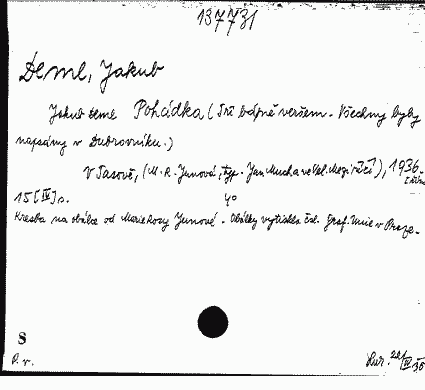 137731
Deml, Jakub
Jakub Deml Pohádka (Tři básně veršem. Všechny byly
napsány v Dubrovníku.)
V Tasově, (M. R. Junová, typ. Jan Mucha ve Vel. Meziříčí), 1936.
15 [IV] s. 4°
Kresba na obálce od Marie Rosy Junové. Obálky vytiskla Čsl. Graf. Unie v Praze.
S
P. v.